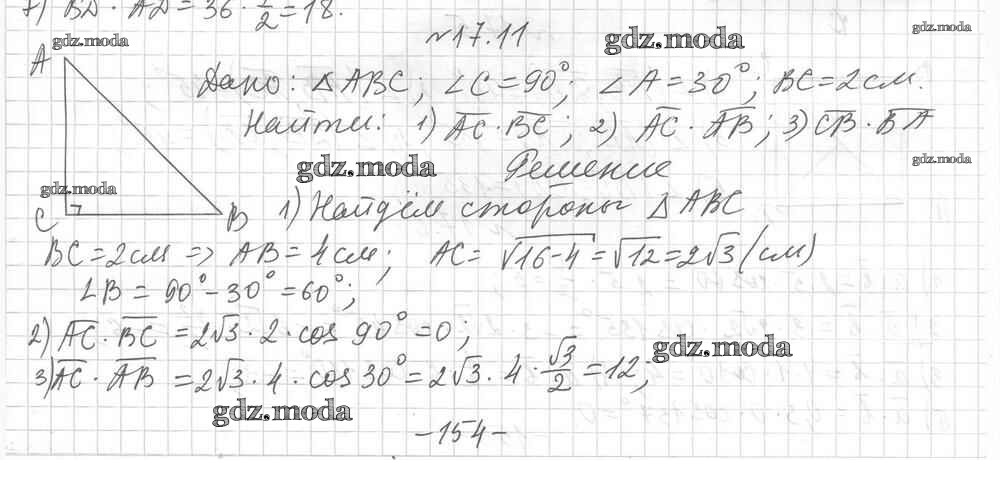 7) BD · AD = 36 · 1/2 = 18.
gdz.moda
№17.11
gdz.moda
gdz.moda
A
Дано: △ABC; ∠C = 90°; ∠A = 30°; BC = 2 см.
Найти: 1) AC · BC; 2) AC · AB; 3) CB · BA
gdz.moda
Решение
gdz.moda
gdz.moda
C
B
1) Найдём стороны △ABC
BC = 2 см => AB = 4 см; AC = √16-4 = √12 = 2√3 (см)
∠B = 90° - 30° = 60°;
2) AC · BC = 2√3 · 2 · cos 90° = 0;
gdz.moda
3) AC · AB = 2√3 · 4 · cos 30° = 2√3 · 4 · √3/2 = 12;
gdz.moda
-154-